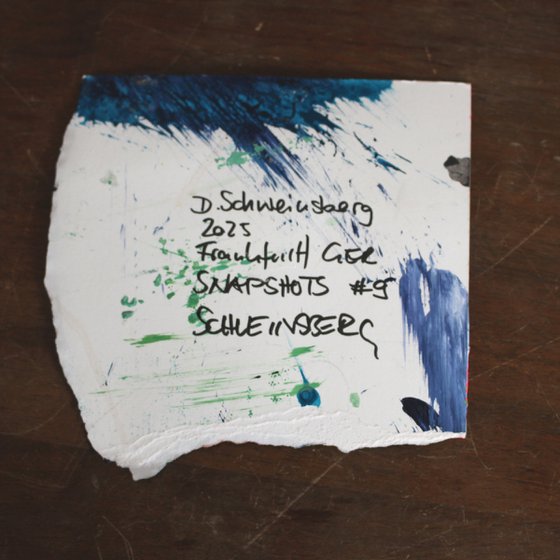 D. Schweinsberg
2025
Frankfurt/ GER
SNAPSHOTS #9
SCHWEINSBERG